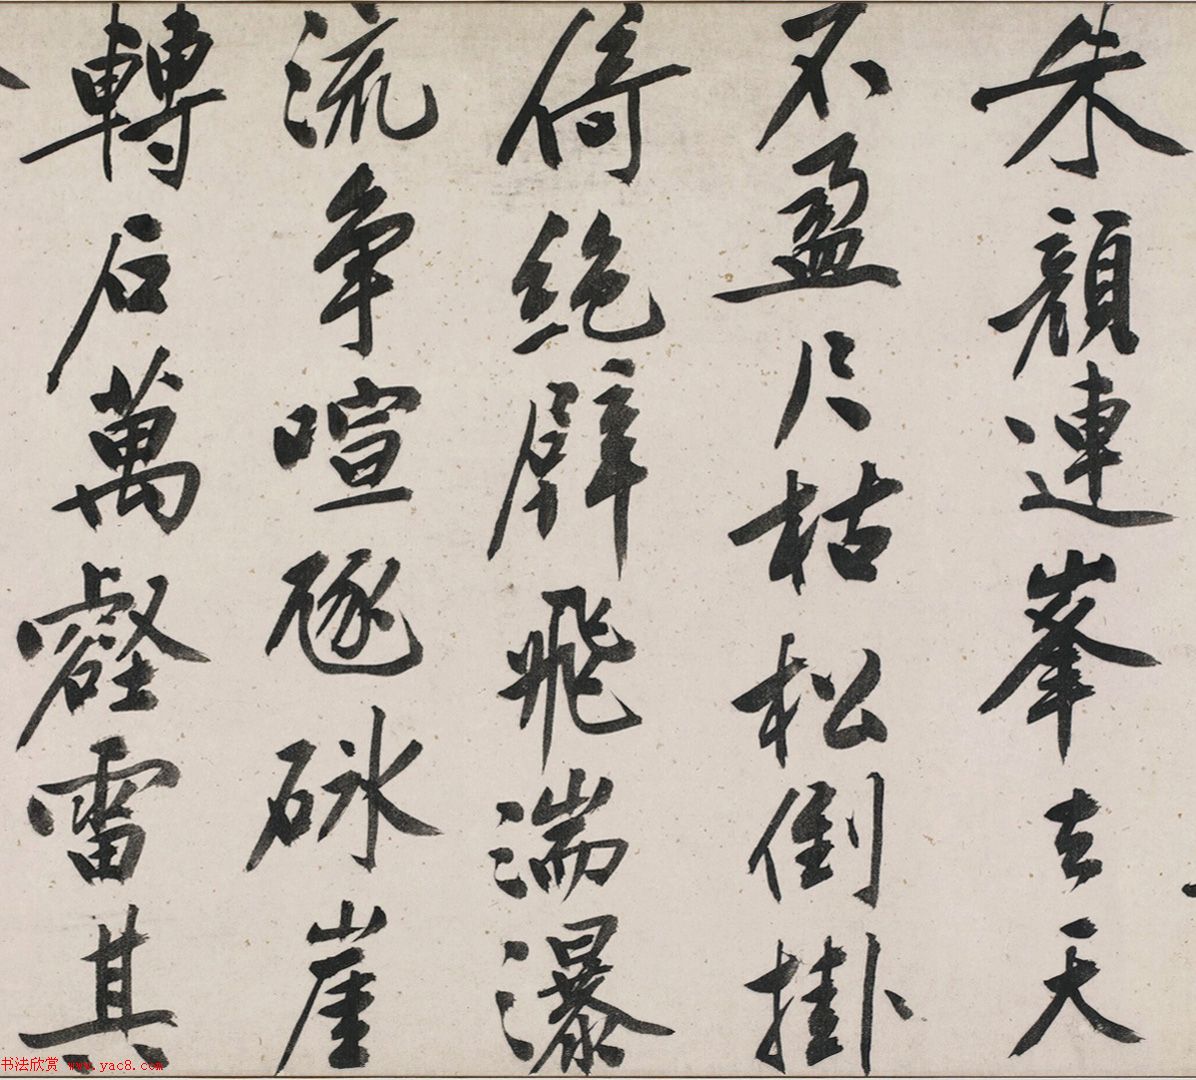 朱顏連峯去天
不盈尺枯松倒掛
倚絶壁飛湍瀑
流爭喧豗砯崖
轉石萬壑雷其
书法欣赏 www.yac8.com